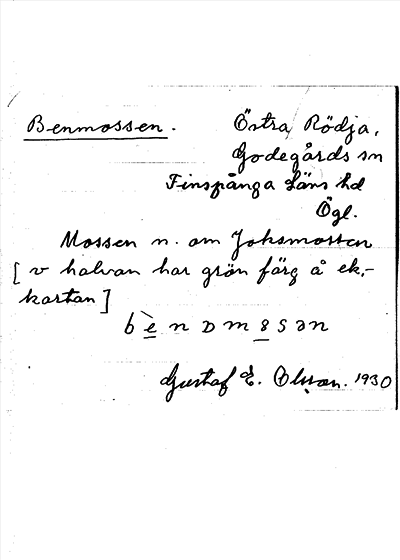 Benmossen. Östra Rödja,
Godegårds sn
Finspånga läns hd
Ögl.
Mossen n. om Joksmossen
[v halvan har grön färg å ek.-
kartan]
Gustaf E. Olsson. 1930